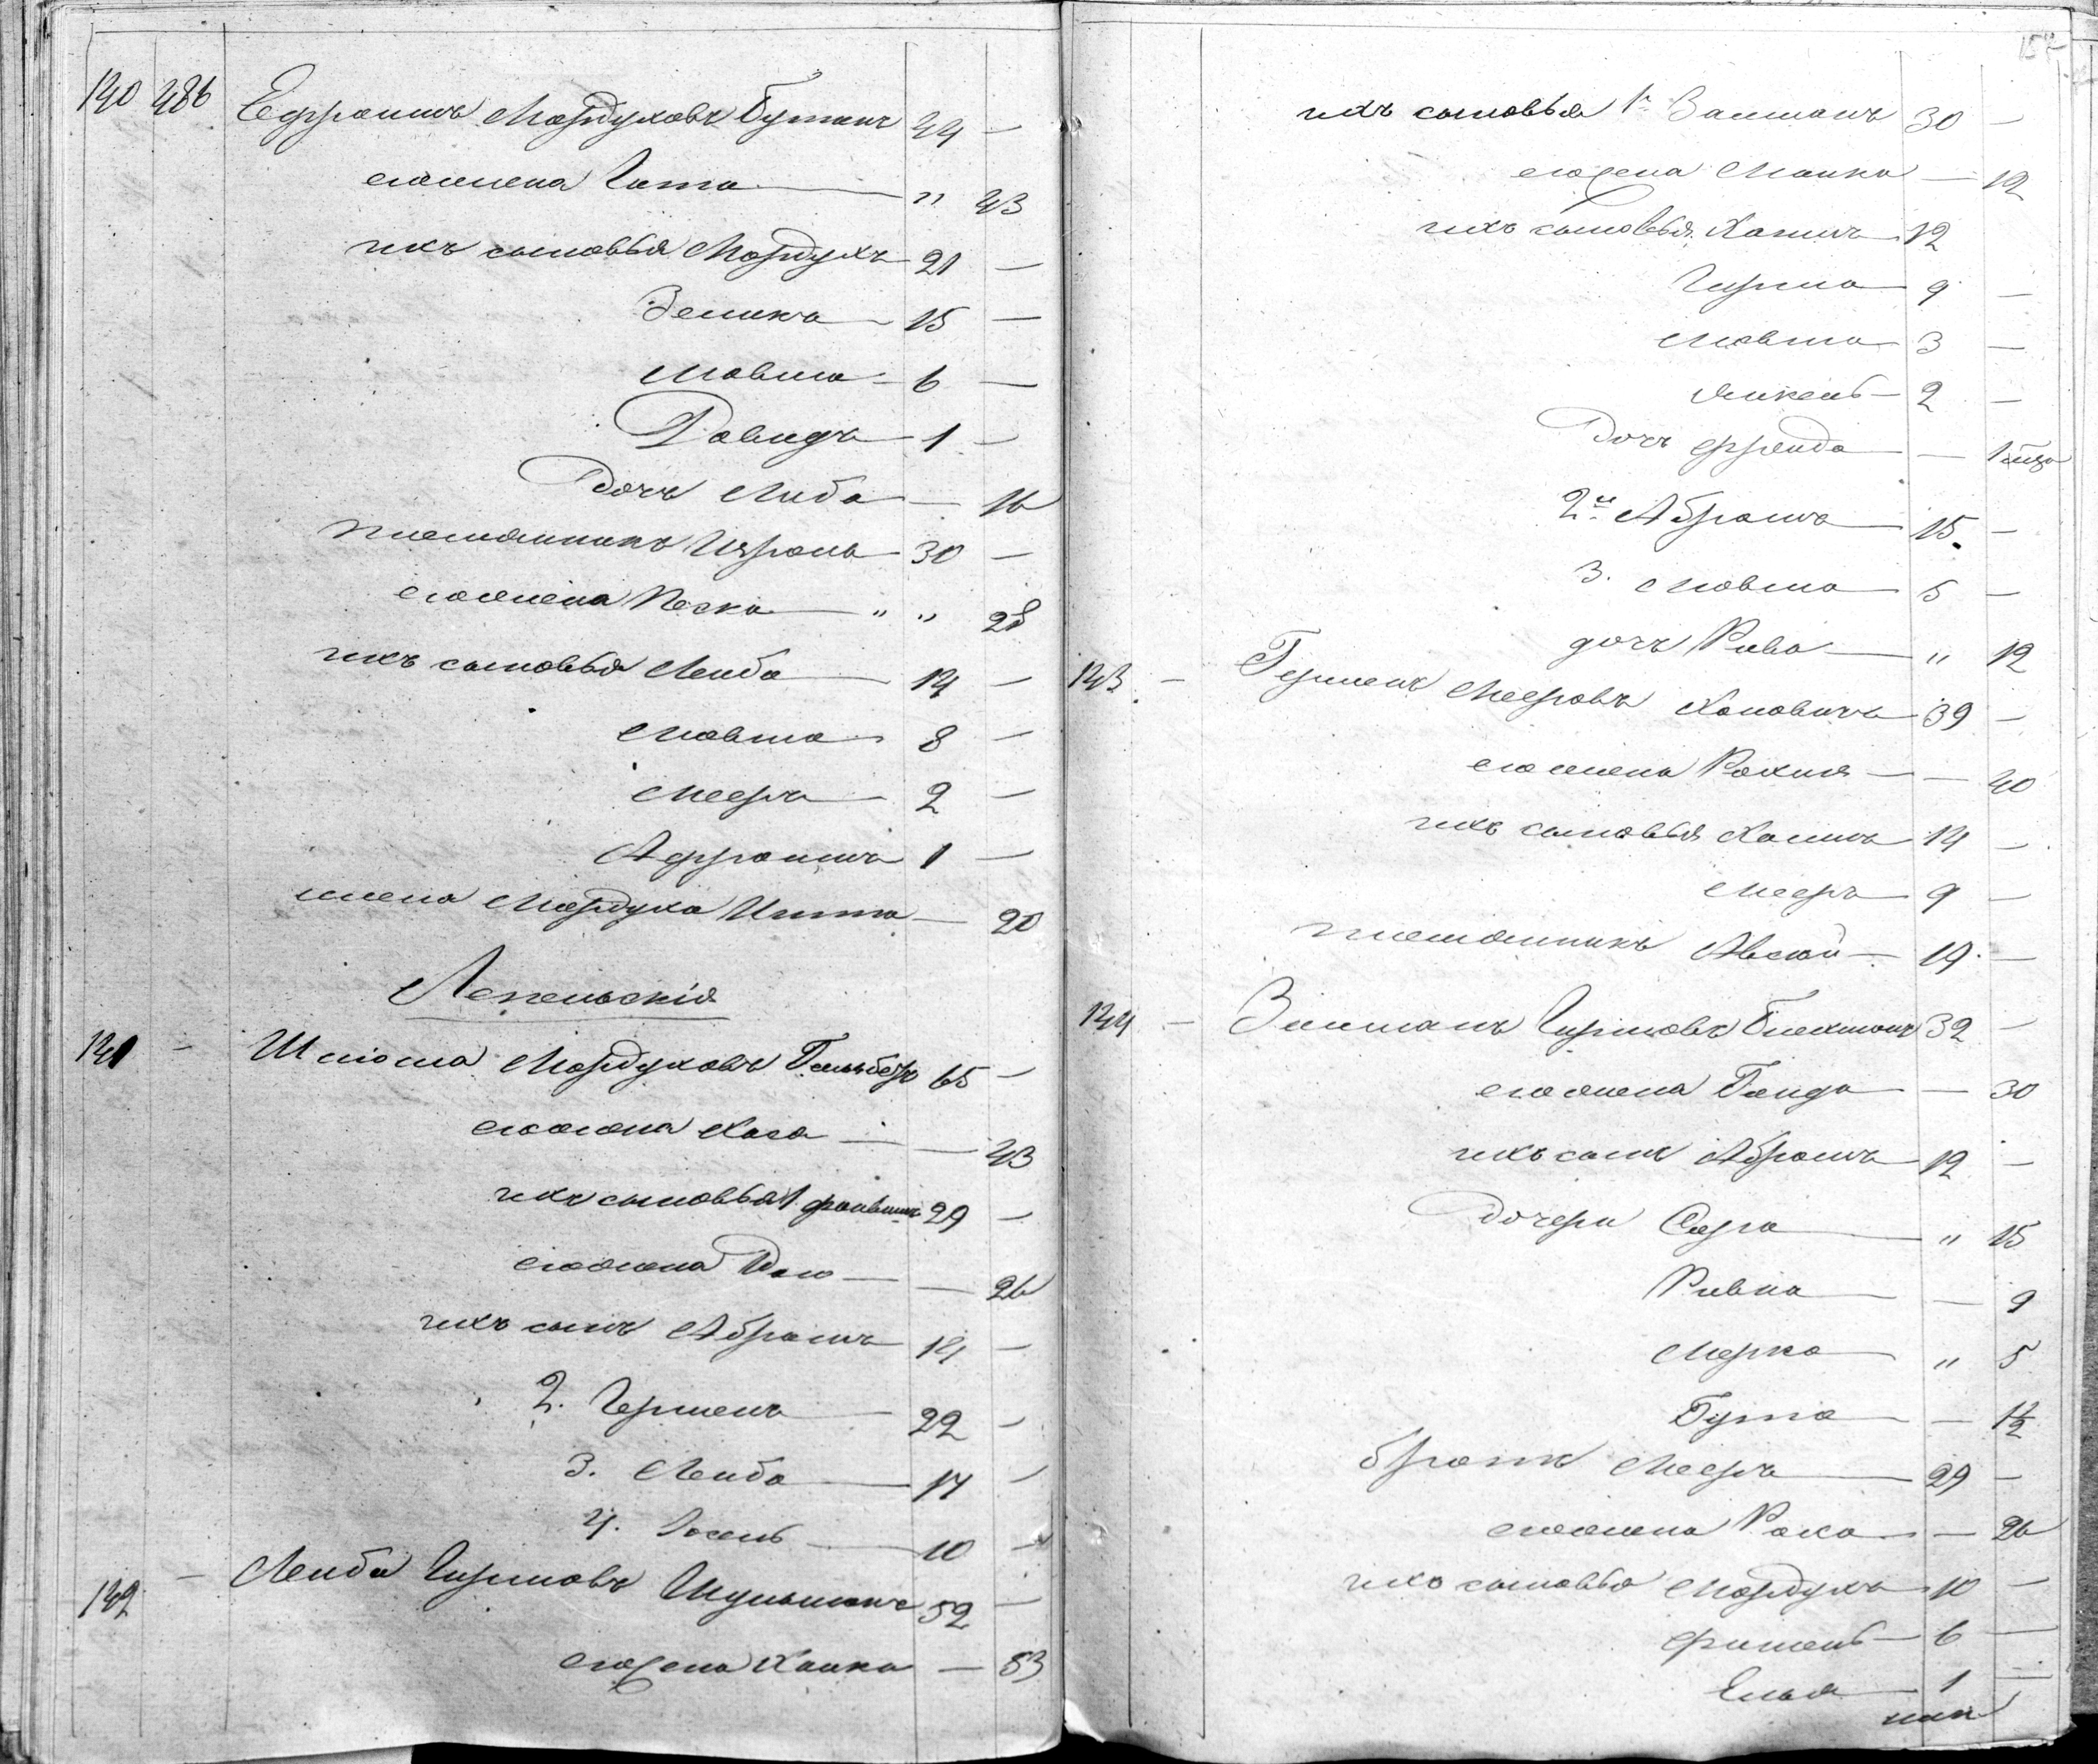 140 486 Ефроимъ Мордуховъ Гутанъ 44 —
его жена Гита — " 43
ихъ сыновья Мордухъ 21 —
Зелика 15 —
Мовша 6 —
Давидъ 1 —
Дочь Либа — 16
племянникъ Израиль 30 —
его жена Песка " " 28
ихъ сыновья Лейба 14 —
Мовша 8 —
Мееръ 2 —
Афроимъ 1 —
жена Мордуха Итта — 20
Лепельскія
141 — Шліома Мордуховъ Гельберъ 65 —
его жена Хася — 43
ихъ сыновья 1. Файвишъ 29 —
его жена — 26
ихъ сынъ Абрамъ 14 —
2. Гершенъ 22 —
3. Лейба 17 —
4. Іосель 10 —
142 — Лейба Гиршовъ Шульманъ 52 —
его жена Ханка — 53
157
ихъ сыновья 1й Залманъ 30 —
его жена Манка — 12
ихъ сыновья Хаимъ 12
Гирша 9 —
Мовша 3 —
Янкель 2 —
Дочь Фрейда — 1
2й Абрамъ 15 —
3. Мовша 5 —
дочь Рива " 12
143 — Гершенъ Мееровъ Хановичъ 39 —
его жена Рохля — 40
ихъ сыновья Хаимъ 14 —
Мееръ 9 —
племянникъ Авсей 19 —
144 — Зилманъ Гиршовъ 32 —
его жена — 30
ихъ сынъ Абрамъ 12 —
дочери Сора " 15
Ривка — 9
Мерка " 5
Гута — 1½
братъ Мееръ 29 —
его жена Раха — 26
ихъ сыновья Мордухъ 10 —
Фишель 6 —
Елья 1 —